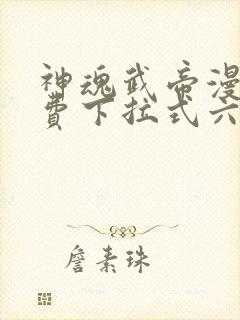 神魂武帝漫
费下拉式六
詹素珠